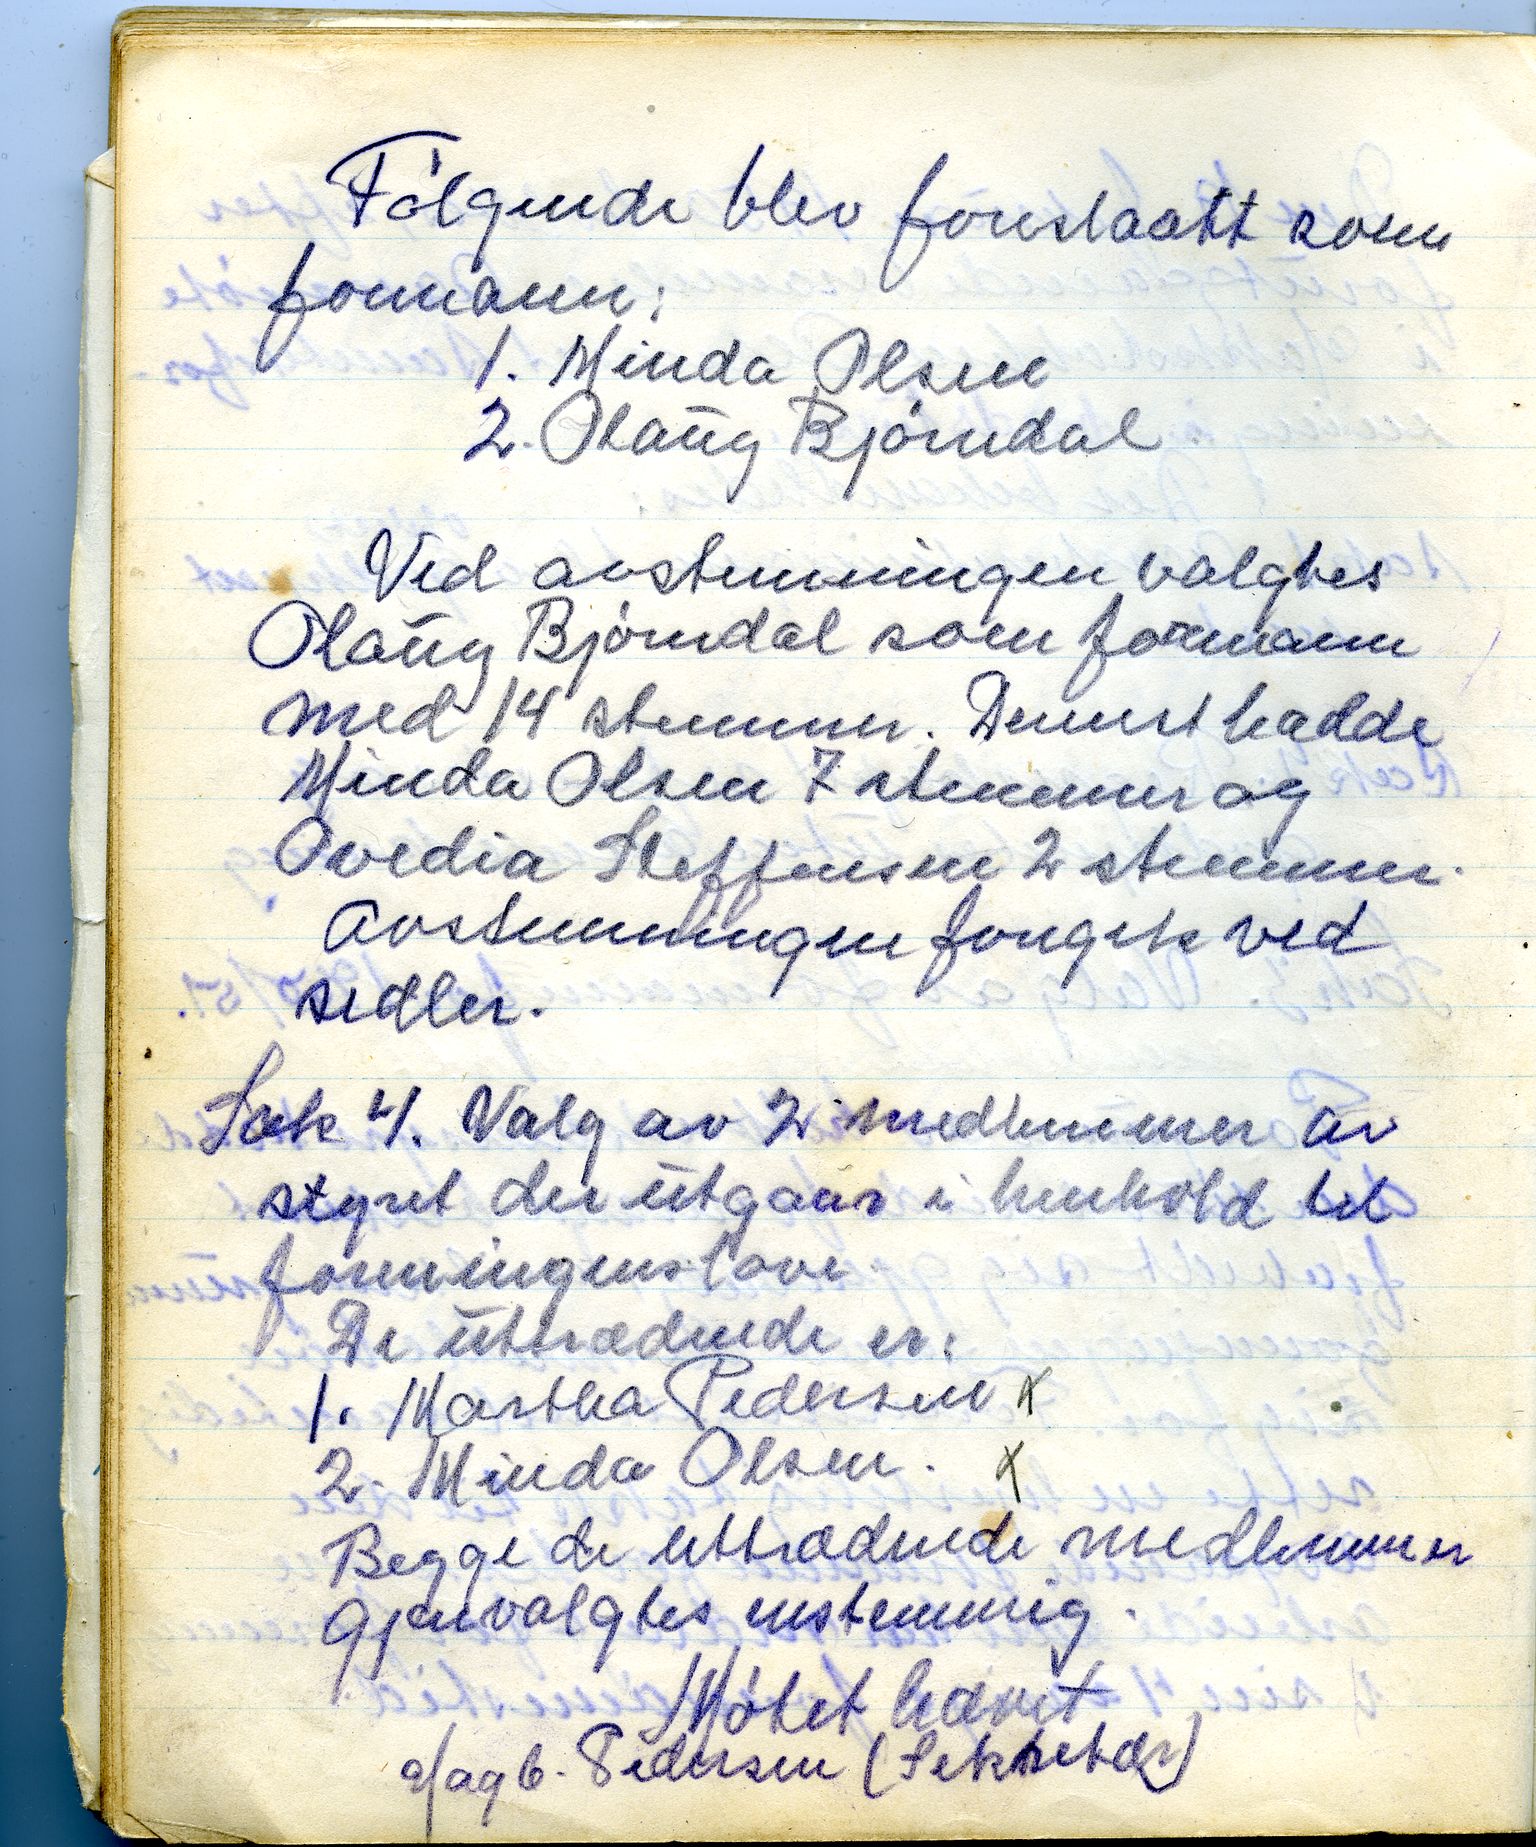 Følgende blev foreslaatt som
formann:
1. Minda Olsen
2. Olaug Bjørndal
Ved avstemningen valgtes
Olaug Bjørndal som formann
med 14 stemmer. Dernest hadde
Minda Olsen 7 stemmer og
Ovedia Steffensen 2 stemmer.
Avstemningen foregik ved
sedler.
Sak 4. Valg av 2 medlemmer av
styret der utgaar i henhold til
foreningens love
De uttrædende er:
1. Martha Pedersen x
2. Minda Olsen. x
Begge de uttrædende medlemmer
gjenvalgtes enstemmig.
Møtet hævet
Pedersen (Sekretær)